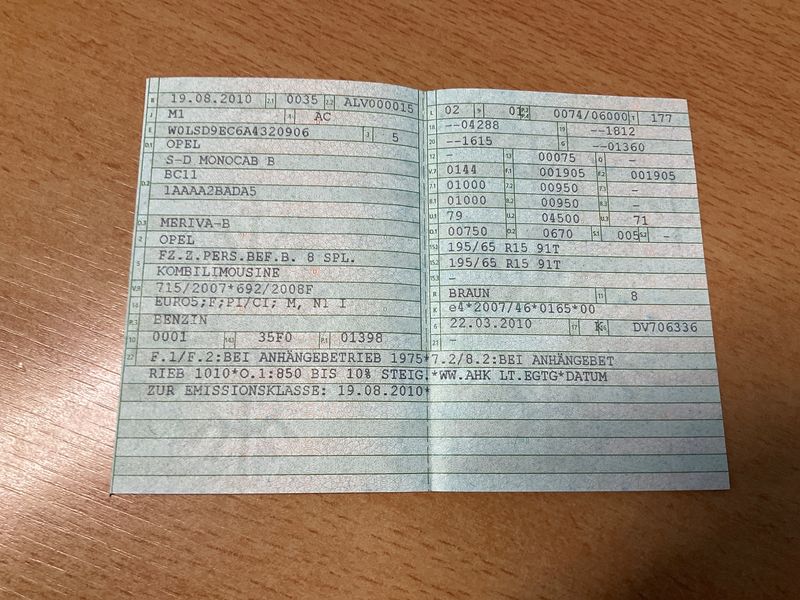 B 19.08.2010 2.1 0035 2.2 ALV000015
J M1 4 AC
E W0LSD9EC6A4320906 3 5
D.1 OPEL
S-D MONOCAB B
D.2 BC11
1AAAA2BADA5
D.3 MERIVA-B
2 OPEL
5 FZ.Z.PERS.BEF.B. 8 SPL.
KOMBILIMOUSINE
V.9 715/2007*692/2008F
14 EURO5;F;PI/CI; M, N1 I
P.3 BENZIN
10 0001 14.1 35F0 P.1 01398
L 02 9 01 P.2 P.4 0074/06000 T 177
18 --04288 19 --1812
20 --1615 G --01360
12 - 13 00075 Q -
V.7 0144 F.1 001905 F.2 001905
7.1 01000 7.2 00950 7.3 -
8.1 01000 8.2 00950 8.3 -
U.1 79 U.2 04500 U.3 71
O.1 00750 O.2 0670 S.1 005 S.2 -
15.1 195/65 R15 91T
15.2 195/65 R15 91T
15.3 -
R BRAUN 11 8
K e4*2007/46*0165*00
6 22.03.2010 17 K 16 DV706336
21 -
22 F.1/F.2:BEI ANHÄNGEBETRIEB 1975*7.2/8.2:BEI ANHÄNGEBET
RIEB 1010*O.1:850 BIS 10% STEIG.*WW.AHK LT.EGTG*DATUM
ZUR EMISSIONSKLASSE: 19.08.2010*